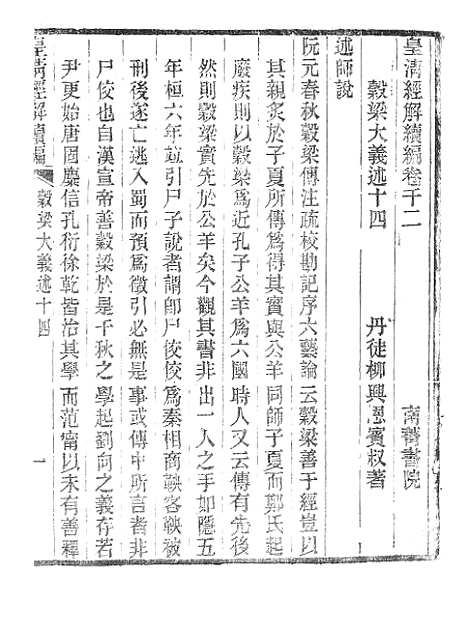 皇清經解續編卷千二　南菁書院
穀梁大義述十四　丹徒柳興恩賓叔著
述師說
阮元春秋穀梁傳注疏校勘記序六藝論云穀梁善于經豈以
其親炙於子夏所傳爲得其實與公羊同師子夏而鄭氏起
廢疾則以穀梁爲近孔子公羊爲六國時人又云傳有先後
然則穀梁實先於公羊矣今觀其書非出一人之手如隱五
年桓六年竝引尸子說者謂卽尸佼佼爲秦相商鞅客鞅被
刑後遂亡逃入蜀而預爲徵引必無是事或傳中所言者非
尸佼也自漢宣帝善穀梁於是千秋之學起劉向之義存若
尹更始唐固麋信孔衍徐乾皆治其學而范甯以未有善釋
皇清經解續編　穀梁大義述十四　一